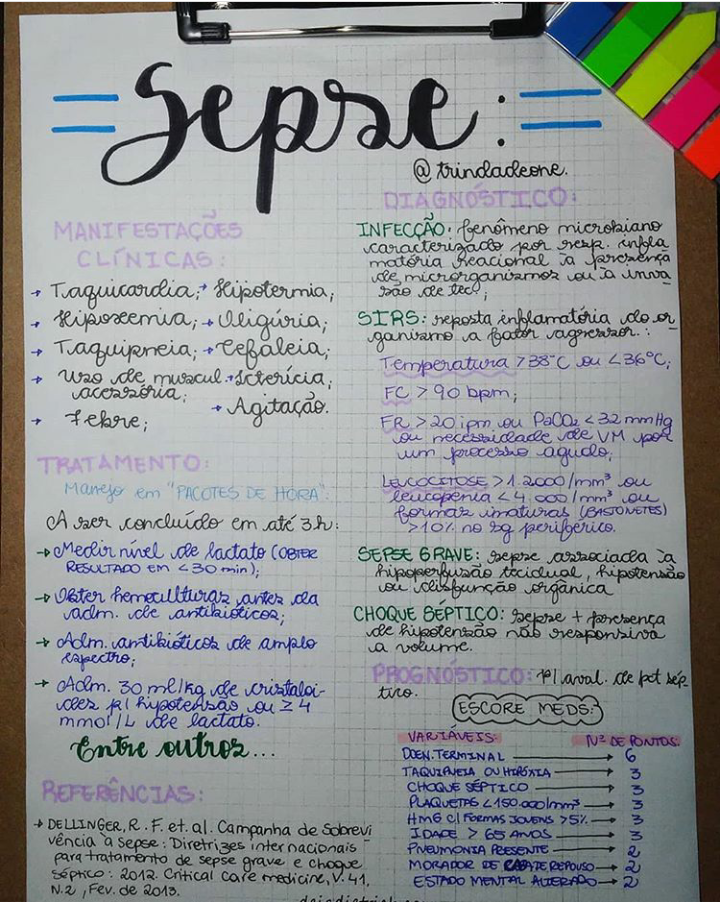 Sepse:
@trindadeone.
MANIFESTAÇÕES
CLÍNICAS:
→ Taquicardia;
→ Hipoxemia;
→ Taquipneia;
→ Uso de muscul.
acessória;
→ Febre;
→ Hipotermia;
→ Oligúria;
→ Cefaleia;
→ Icterícia;
→ Agitação.
TRATAMENTO:
Manejo em "PACOTES DE HORA":
A ser concluído em até 3h:
→ Medir nível de lactato (OBTER
RESULTADO EM <30 min);
→ Obter hemoculturas antes da
adm. de antibióticos;
→ Adm. antibióticos de amplo
espectro;
→ Adm. 30 ml/kg de cristaloi-
des p/ hipotensão ou ≥ 4
mmol/L de lactato.
Entre outros...
REFERÊNCIAS:
→ DELLINGER, R. F. et. al. Campanha de Sobrevi
vência a Sepse: Diretrizes internacionais
para tratamento de sepse grave e choque
séptico: 2012. Critical Care medicine, V. 41,
N.2, Fev. de 2013.
DIAGNÓSTICO:
INFECÇÃO: fenômeno microbiano
caracterizado por resp. infla
matória reacional à presença
de microrganismos ou à inva
são de tec.;
SIRS: reposta inflamatória do or
ganismo a fator agressor.:
Temperatura >38°C ou <36°C;
FC > 90 bpm;
FR >20 ipm ou PaCO₂ <32 mmHg
ou necessidade de VM por
um processo agudo;
LEUCOCITOSE >12000/mm³ ou
leucopenia <4.000/mm³ ou
formas imaturas (BASTONETES)
>10% no sg periférico.
SEPSE GRAVE: sepse associada à
hipoperfusão tecidual, hipotensão
ou disfunção orgânica
CHOQUE SÉPTICO: sepse + presença
de hipotensão não responsiva
a volume.
PROGNÓSTICO: p/ aval. de pct sép
tico.
ESCORE MEDS:
VARIÁVEIS: Nº DE PONTOS:
DOEN. TERMINAL → 6
TAQUIPNEIA OU HIPÓXIA → 3
CHOQUE SÉPTICO → 3
PLAQUETAS <150.000/mm³ → 3
HMG C/ FORMAS JOVENS >5% → 3
IDADE > 65 ANOS → 3
PNEUMONIA PRESENTE → 2
MORADOR DE CASA DE REPOUSO → 2
ESTADO MENTAL ALTERADO → 2